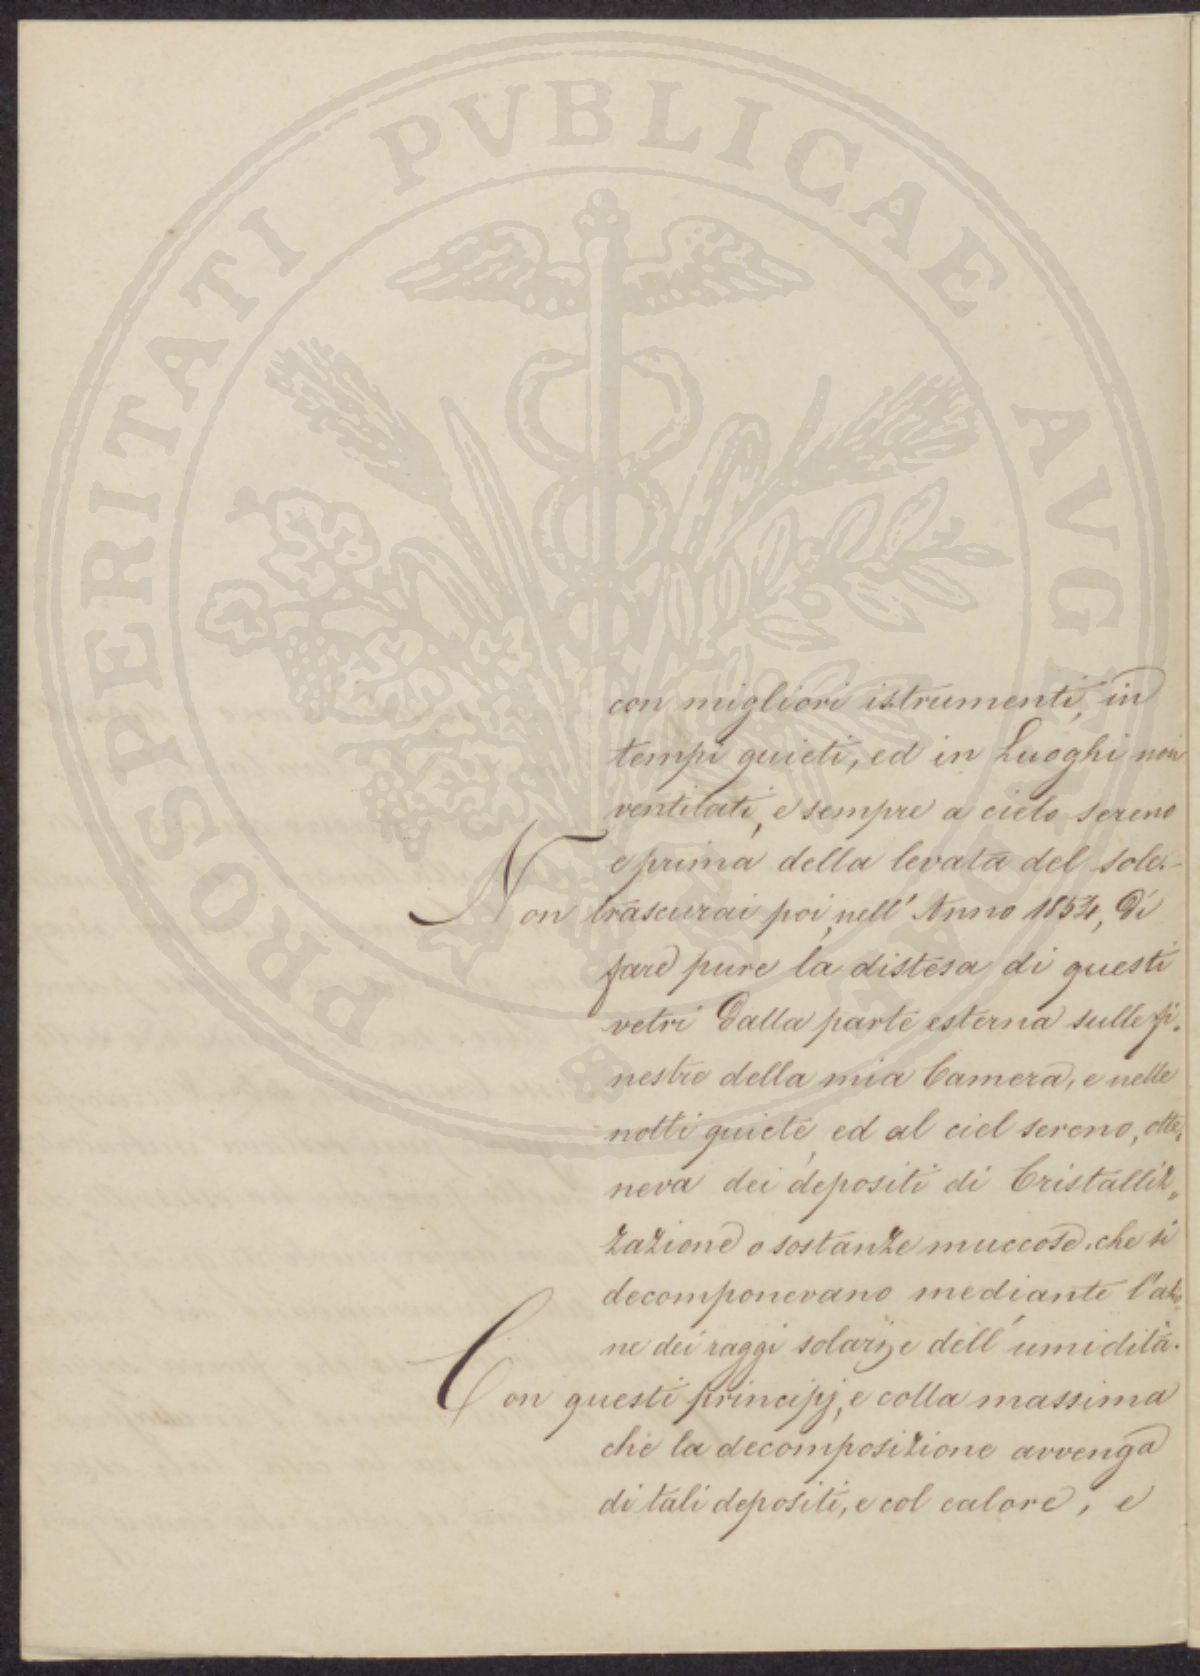 PROSPERITATI PVBLICAE AVGENDAE
con migliori istrumenti, in
tempi quieti, ed in Luoghi non
ventilati, e sempre a cielo sereno
e prima della levata del sole.-
Non trascurai poi, nell' Anno 1854, Di
fare pure la distesa di questi
vetri Dalla parte esterna sulle fi-
nestre della mia Camera, e nelle
notti quiete, ed al ciel sereno, otte-
neva dei depositi di Cristalliz-
zazione o sostanze muccose, che si
decomponevano mediante l'
ne dei raggi solari, e dell' umidità.
Con questi principj, e colla massima
che la decomposizione avvenga
di tali depositi, e col calore, e